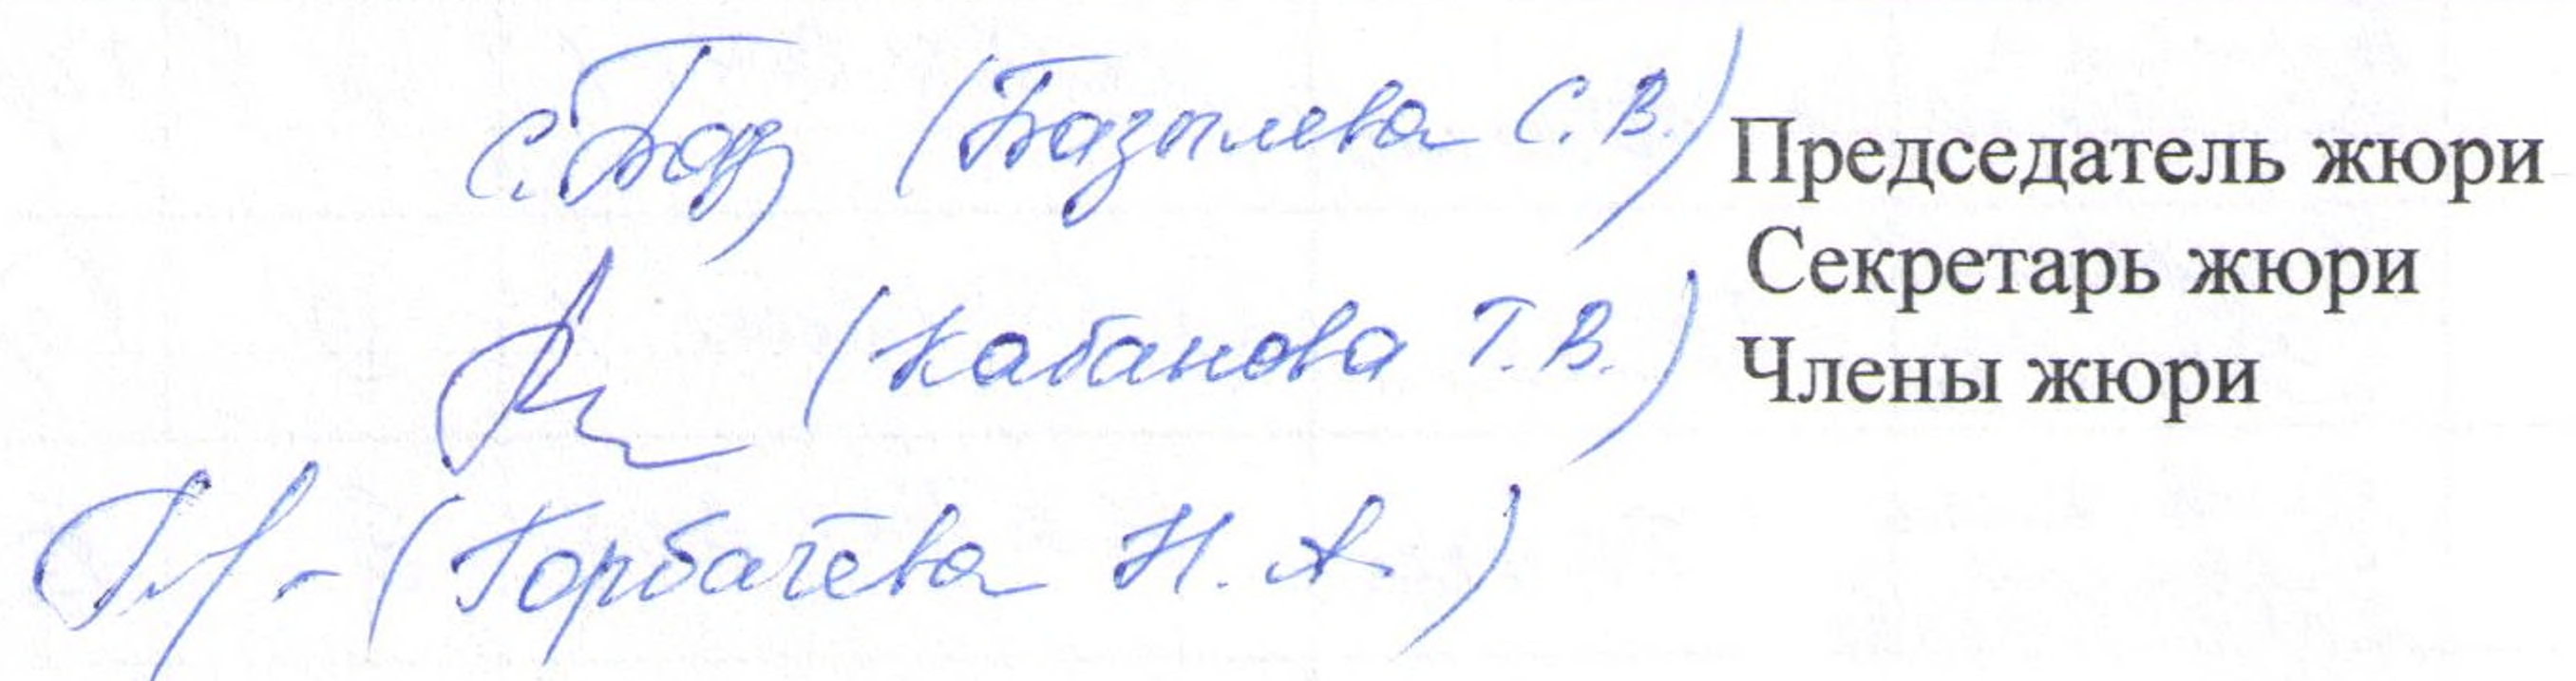 С. Баз (Базылева С. В.) Председатель жюри
(Кабанова Т. В.) Секретарь жюри
Члены жюри
(Горбачёва Н. А.)